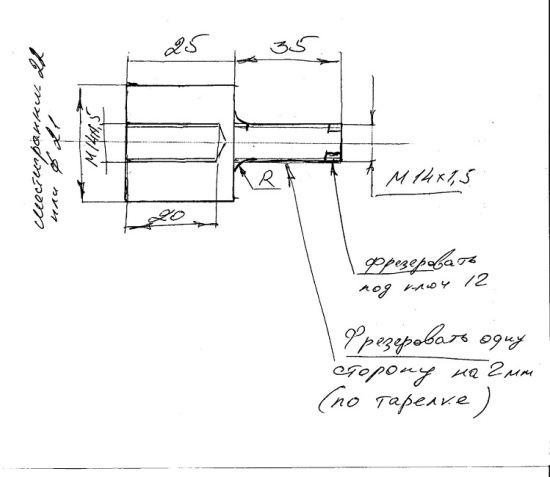 25
35
шестигранник 22
или ф 21
М14х1,5
20
R
М14х1,5
фрезеровать
под ключ 12
Фрезеровать одну
сторону на 2мм
(по тарелке)